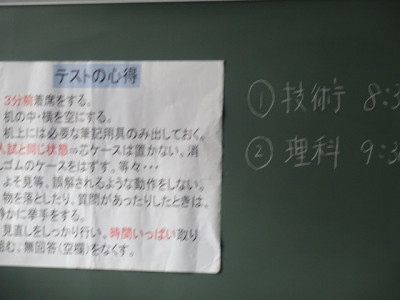 テストの心得
3分前着席をする。
机の中・横を空にする。
机上には必要な筆記用具のみ出しておく。
入試と同じ状態⇒芯ケースは置かない。消
しゴムのケースをはずす。等々・・・
よそ見等。誤解されるような動作をしない。
物を落としたり、質問があったりしたときは、
静かに挙手をする。
見直しをしっかり行い。時間いっぱい取り
組む。無回答(空欄)をなくす。
① 技術 8:3
② 理科 9:3